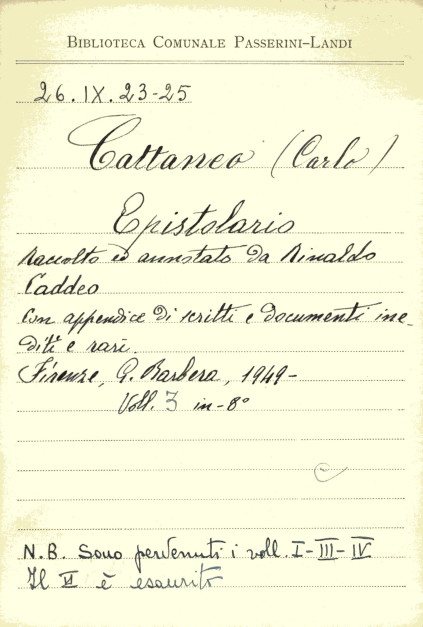 BIBLIOTECA COMUNALE PASSERINI-LANDI
26.IX.23-25
Cattaneo (Carlo)
Epistolario
Raccolto ed annotato da Rinaldo
Caddeo
con appendice di scritti e documenti ine-
diti e rari.
Firenze, G. Barbera, 1949-
Voll. 3 in-8°
N.B. Sono pervenuti i voll. I-III-IV
Il II è esaurito